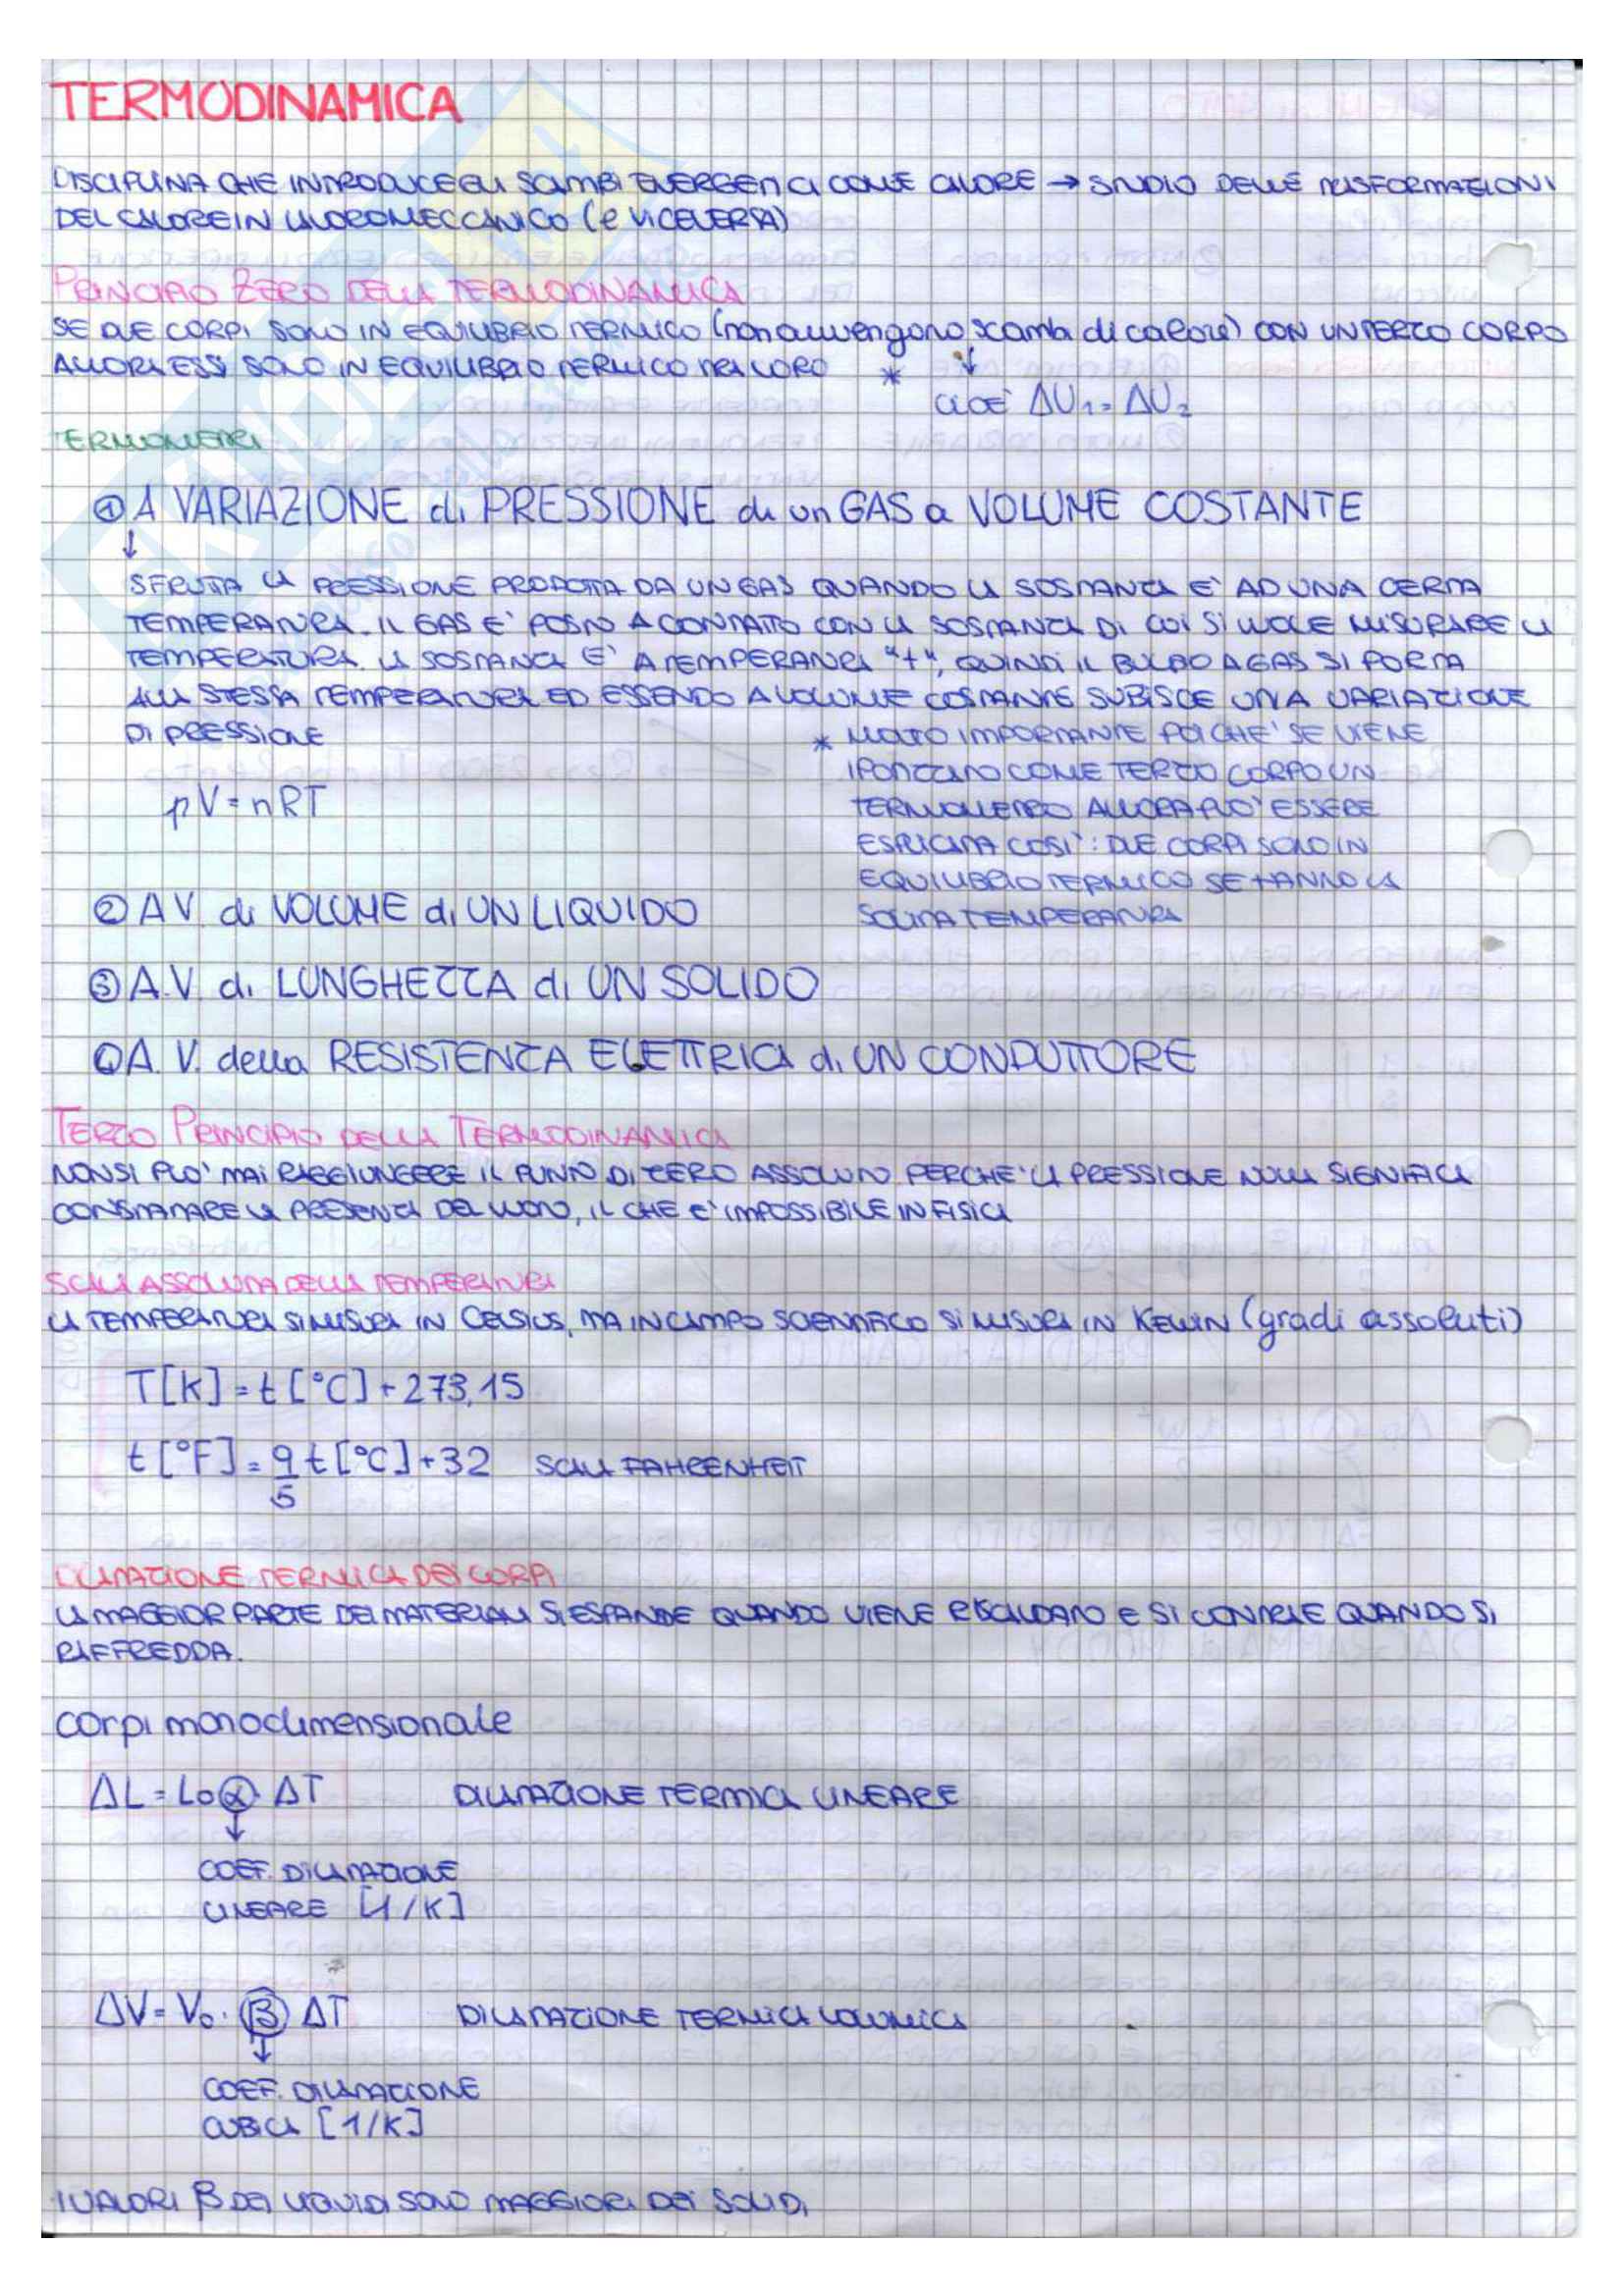 TERMODINAMICA
DISCIPLINA CHE INTRODUCE GLI SCAMBI ENERGETICI COME CALORE → STUDIO DELLE TRASFORMAZIONI
DEL CALORE IN LAVORO MECCANICO (e VICEVERSA)
PRINCIPIO ZERO DELLA TERMODINAMICA
SE DUE CORPI SONO IN EQUILIBRIO TERMICO (non avvengono scambi di calore) CON UN TERZO CORPO
ALLORA ESSI SONO IN EQUILIBRIO TERMICO TRA LORO *
↓
CIOE' ΔU₁ = ΔU₂
TERMOMETRI
① A VARIAZIONE di PRESSIONE di un GAS a VOLUME COSTANTE
↓
SFRUTTA LA PRESSIONE PRODOTTA DA UN GAS QUANDO LA SOSTANZA E' AD UNA CERTA
TEMPERATURA. IL GAS E' POSTO A CONTATTO CON LA SOSTANZA DI CUI SI VUOLE MISURARE LA
TEMPERATURA. LA SOSTANZA E' A TEMPERATURA "t", QUINDI IL BULBO A GAS SI PORTA
ALLA STESSA TEMPERATURA ED ESSENDO A VOLUME COSTANTE SUBISCE UNA VARIAZIONE
DI PRESSIONE
pV = nRT
* MOLTO IMPORTANTE POICHE' SE VIENE
IPOTIZZATO COME TERZO CORPO UN
TERMOMETRO ALLORA PUO' ESSERE
ESPLICATA COSI': DUE CORPI SONO IN
EQUILIBRIO TERMICO SE HANNO LA
SOLITA TEMPERATURA
② A V. di VOLUME di UN LIQUIDO
③ A.V. di LUNGHEZZA di UN SOLIDO
④ A. V. della RESISTENZA ELETTRICA di UN CONDUTTORE
TERZO PRINCIPIO DELLA TERMODINAMICA
NON SI PUO' MAI RAGGIUNGERE IL PUNTO DI ZERO ASSOLUTO PERCHE' LA PRESSIONE NULLA SIGNIFICA
CONSTATARE LA PRESENZA DEL VUOTO, IL CHE E' IMPOSSIBILE IN FISICA
SCALA ASSOLUTA DELLA TEMPERATURA
LA TEMPERATURA SI MISURA IN CELSIUS, MA IN CAMPO SCIENTIFICO SI MISURA IN KELVIN (gradi assoluti)
T[K] = t[°C] + 273,15
t[°F] = 9/5 t[°C] + 32 SCALA FAHRENHEIT
DILATAZIONE TERMICA DEI CORPI
LA MAGGIOR PARTE DEI MATERIALI SI ESPANDE QUANDO VIENE RISCALDATO E SI CONTRAE QUANDO SI
RAFFREDDA.
corpi monodimensionale
ΔL = L₀ α · ΔT DILATAZIONE TERMICA LINEARE
↓
COEF. DILATAZIONE
LINEARE [1/K]
ΔV = V₀ · β ΔT DILATAZIONE TERMICA VOLUMICA
↓
COEF. DILATAZIONE
CUBICA [1/K]
I VALORI β DEI LIQUIDI SONO MAGGIORI DEI SOLIDI